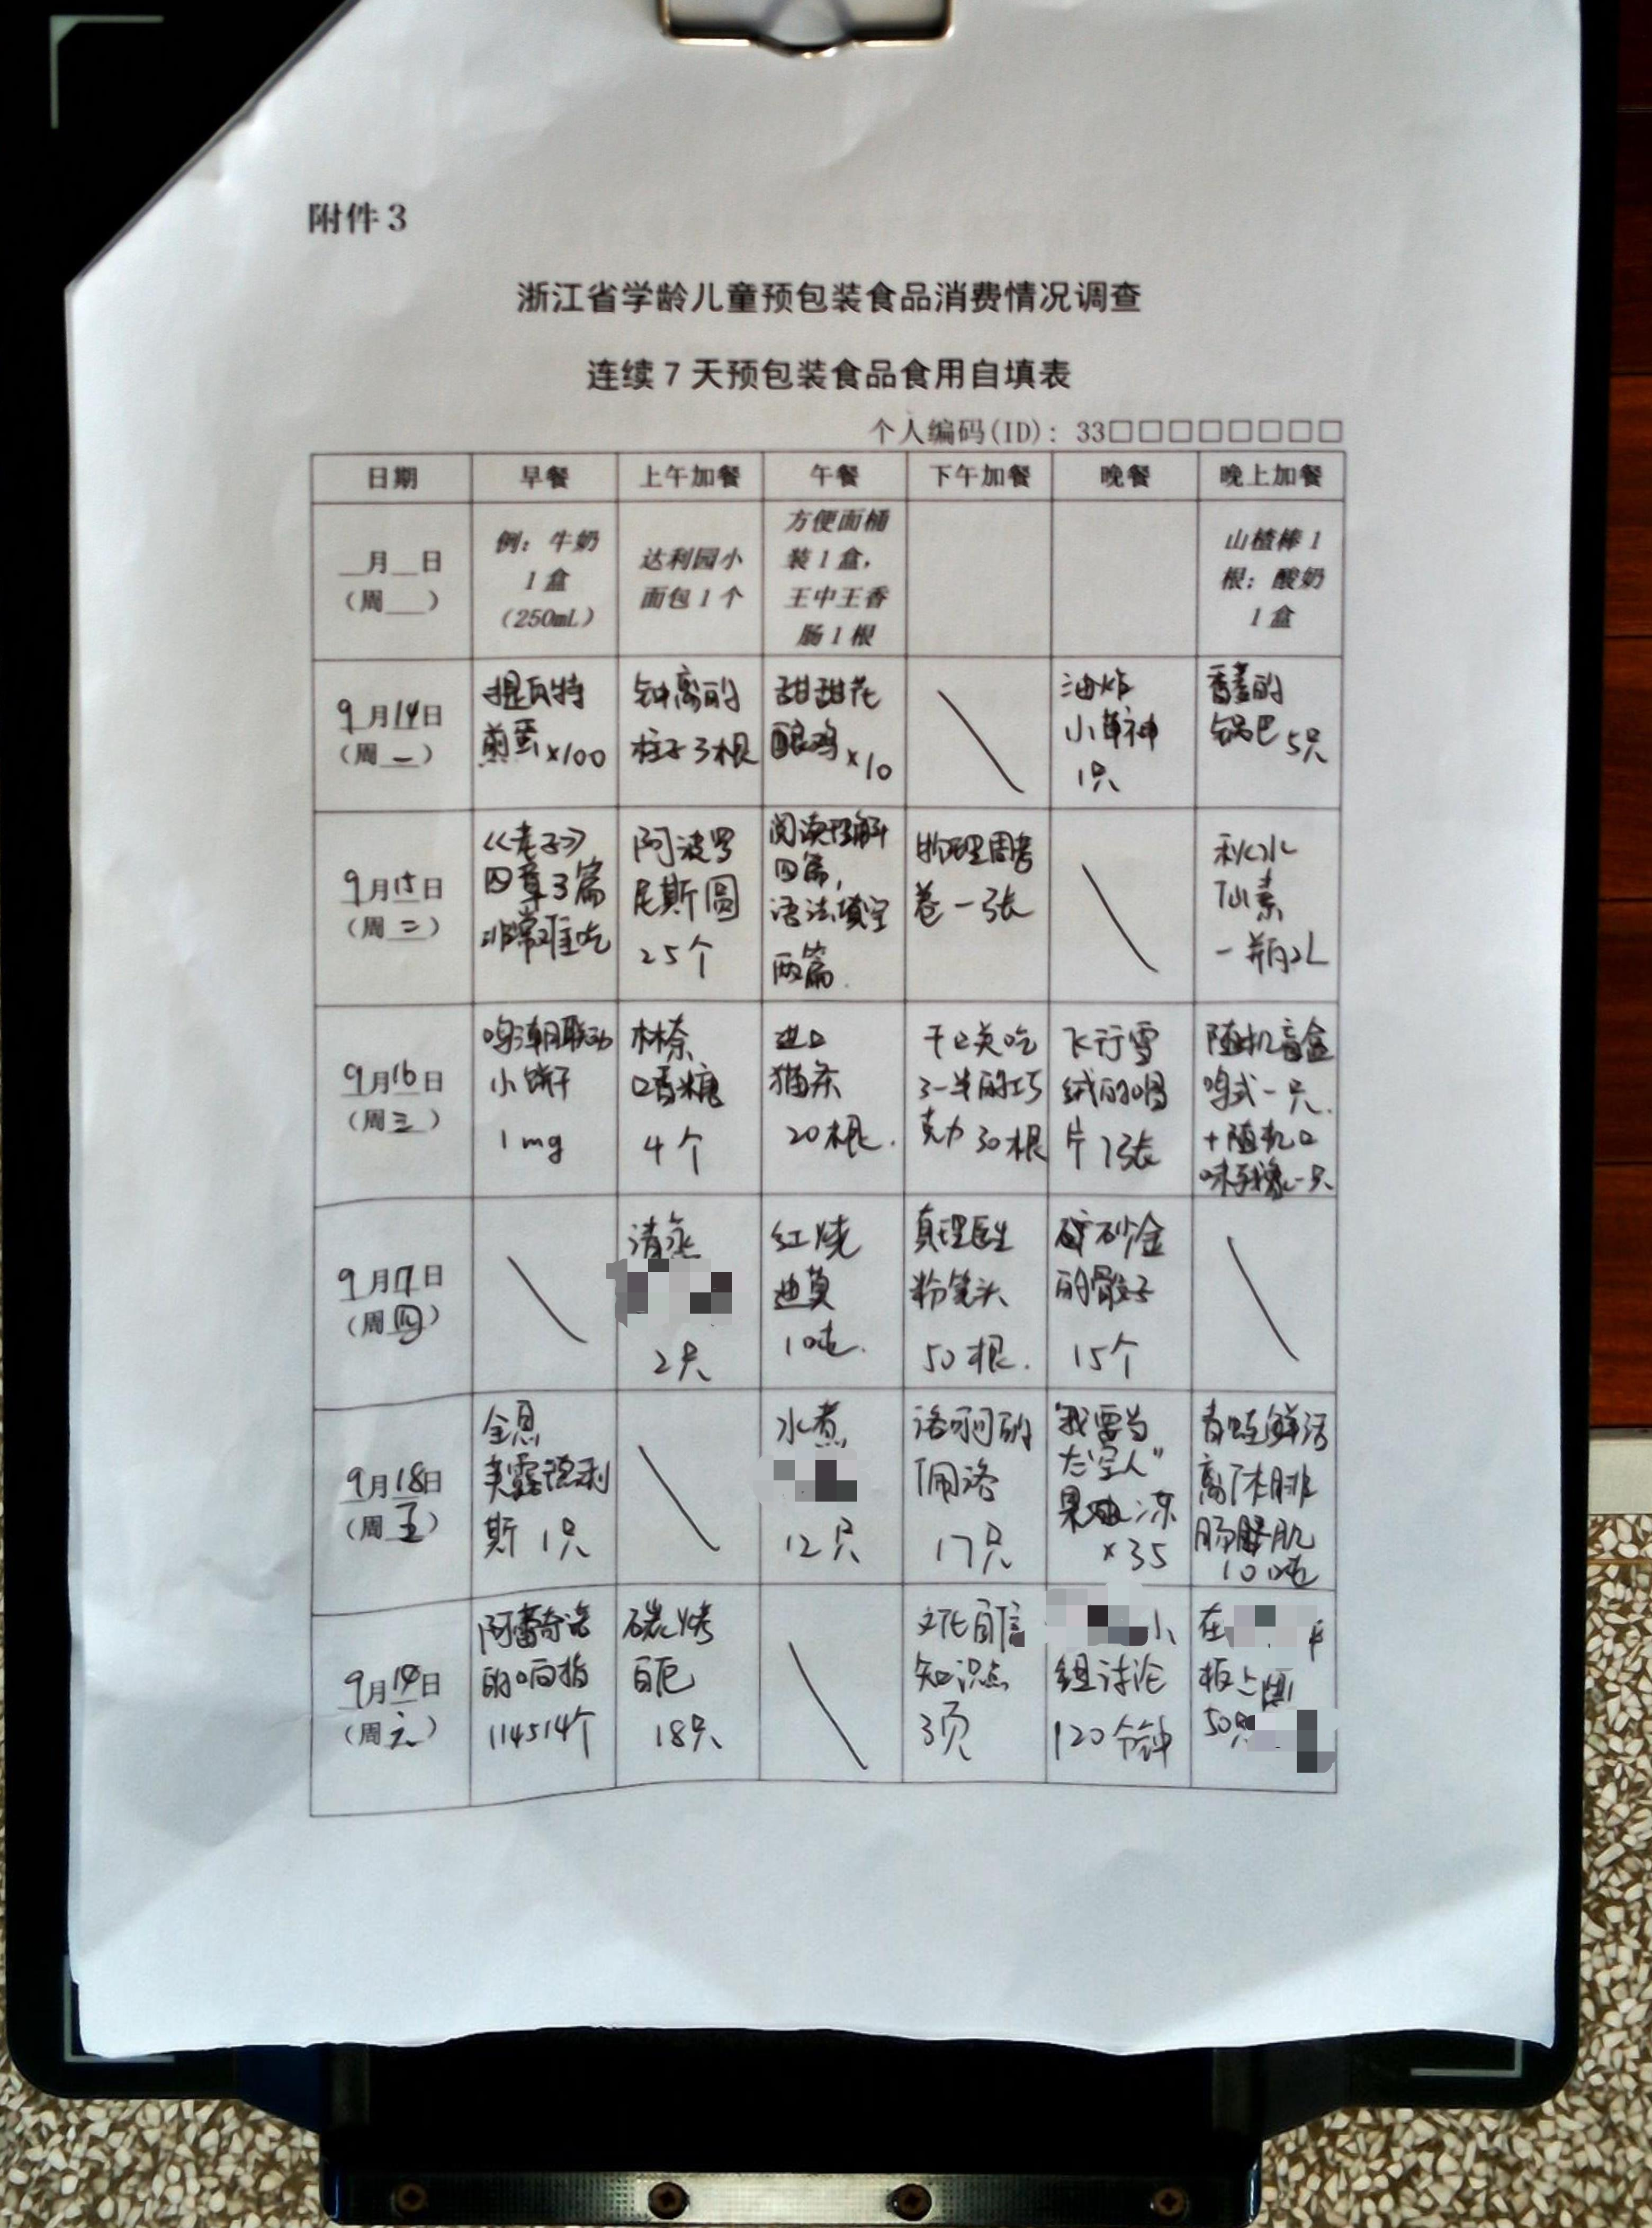 附件3
浙江省学龄儿童预包装食品消费情况调查
连续7天预包装食品食用自填表
个人编码(ID): 33□□□□□□□□
日期 早餐 上午加餐 午餐 下午加餐 晚餐 晚上加餐
__月__日
(周__)
例：牛奶
1盒
(250mL)
达利园小
面包1个
方便面桶
装1盒，
王中王香
肠1根
山楂棒1
根；酸奶
1盒
9月14日
(周一)
提瓦特
煎蛋×100
钟离的
柱子3根
甜甜花
酿鸡×10
油炸
小草神
1只
香菱的
锅巴5只
9月15日
(周二)
《老子》
四章3篇
非常难吃
阿波罗
尼斯圆
25个
阅读理解
四篇，
语法填空
两篇.
物理周考
卷一张
秋水
仙素
一瓶2L
9月16日
(周三)
鸣潮联动
小饼干
1mg
林奈
口香糖
4个
进口
猫条
20根.
千咲吃
3一半的巧
克力30根
飞行雪
绒的唱
片7张
随机盲盒
鸣式一只.
+随机口
味残像一只
9月17日
(周四)
清蒸
2只
红烧
迪莫
10吨.
真理医生
粉笔头
50根.
砂金
的骰子
15个
9月18日
(周五)
全息
芙露德利
斯 1只
水煮
12只
洛可可
佩洛
17只
"我要当
太空人"
果冻
×35
青蛙鲜活
离体腓
肠肌
10吨
9月19日
(周六)
阿蕾奇诺
的响指
114514个
碳烤
白厄
18只
文化自信
知识点
3页
小
组讨论
120分钟
在
板上画
50只